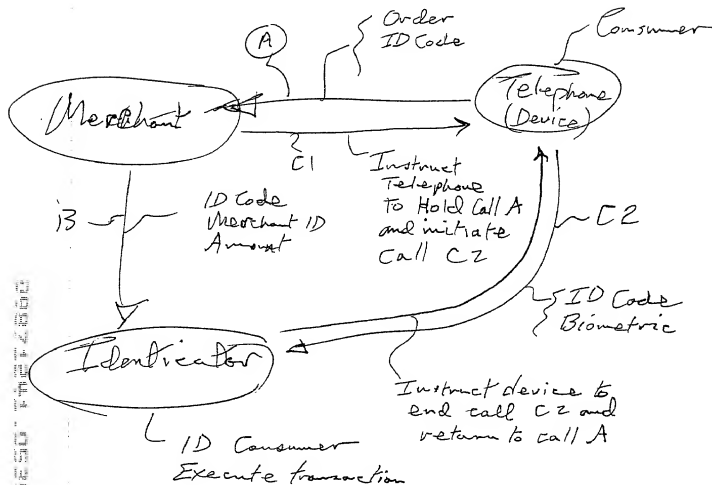 Order
ID Code
A
Consumer
Merchant
Telephone
(Device)
C1
Instruct
Telephone
to Hold Call A
and initiate
call C2
B
ID Code
Merchant ID
Amount
C2
ID Code
Biometric
Identicator
Instruct device to
end call C2 and
return to call A
ID Consumer
Execute transaction